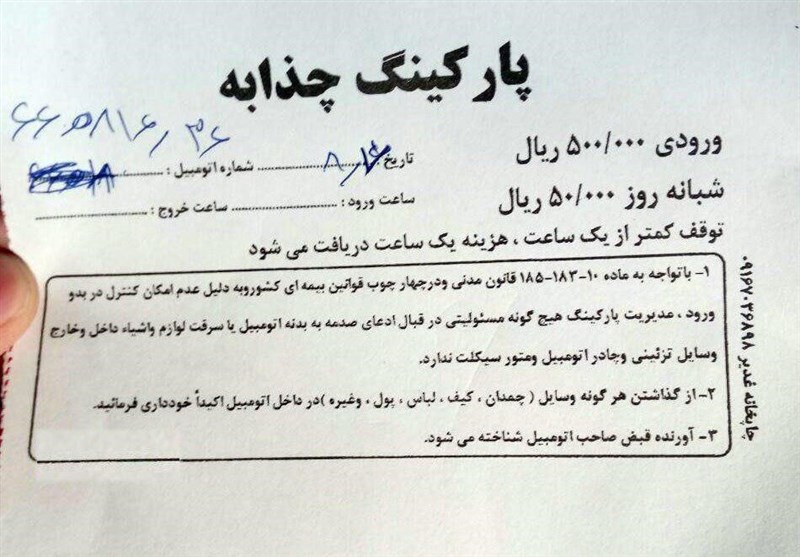 پارکینگ چذابه
ورودی ۵۰۰/۰۰۰ ریال
شبانه روز ۵۰/۰۰۰ ریال
تاریخ ........ شماره اتومبیل : ........
ساعت ورود : ........ ساعت خروج : ........
توقف کمتر از یک ساعت ، هزینه یک ساعت دریافت می شود
۱- باتواجه به ماده ۱۰-۱۸۳-۱۸۵ قانون مدنی ودرچهار چوب قوانین بیمه ای کشوروبه دلیل عدم امکان کنترل در بدو
ورود ، مدیریت پارکینگ هیچ گونه مسئولیتی در قبال ادعای صدمه به بدنه اتومبیل یا سرقت لوازم واشیاء داخل وخارج
وسایل تزئینی وچادر اتومبیل ومتور سیکلت ندارد.
۲- از گذاشتن هر گونه وسایل ( چمدان ، کیف ، لباس ، پول ، وغیره )در داخل اتومبیل اکیداً خودداری فرمائید.
۳- آورنده قبض صاحب اتومبیل شناخته می شود.
چاپخانه غدیر ۰۹۱۶۷۰۲۶۸۹۸